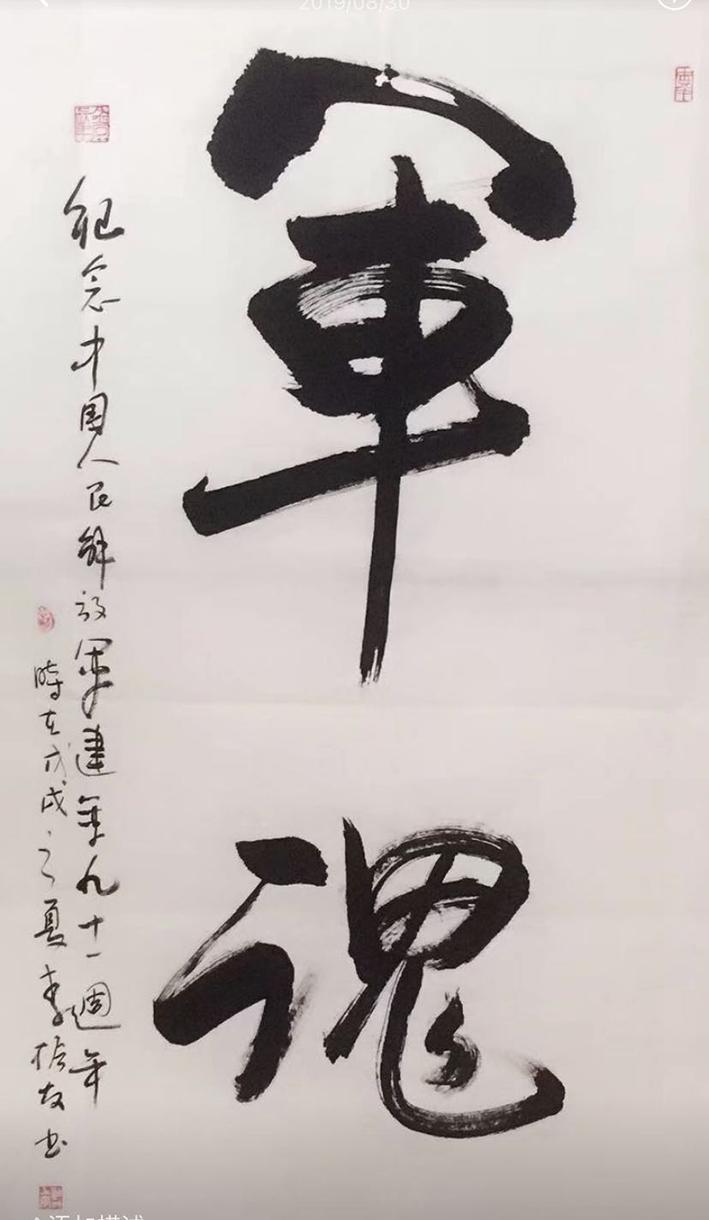 2019/08/30
軍魂
纪念中国人民解放軍建軍九十一週年
時在戊戌之夏李柏友书